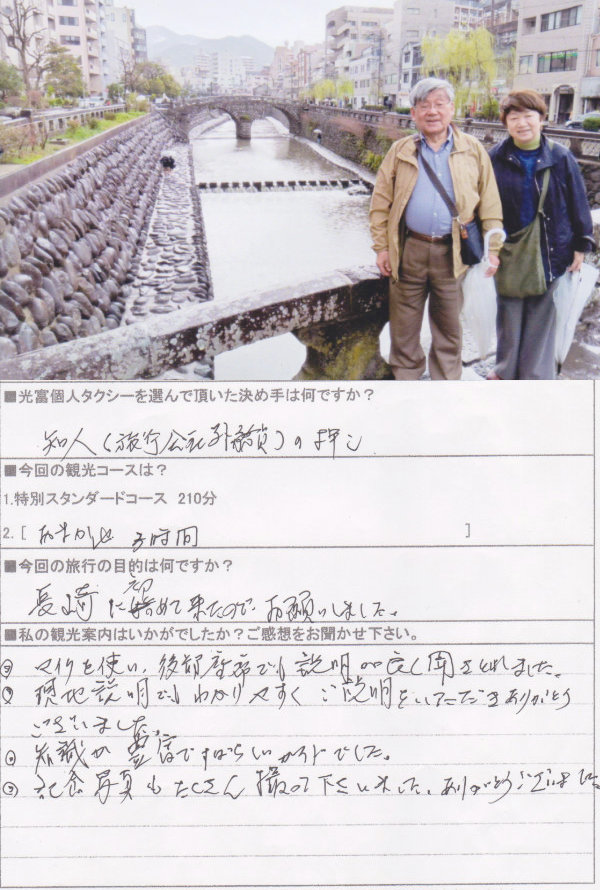 ■光富個人タクシーを選んで頂いた決め手は何ですか？
知人（旅行会社 ）の押し
■今回の観光コースは？
1.特別スタンダードコース 210分
2.［ おまかせ 3時間 ］
■今回の旅行の目的は何ですか？
長崎に初めて来たので、お願いしました。
■私の観光案内はいかがでしたか？ご感想をお聞かせ下さい。
マイクを使い、後部座席でも説明が良く聞きとれました。
現地説明でもわかりやすくご説明をいただきありがとう
ございました。
知識が豊富ですばらしいガイドでした。
記念写真もたくさん撮って下さいました、ありがとうございました。